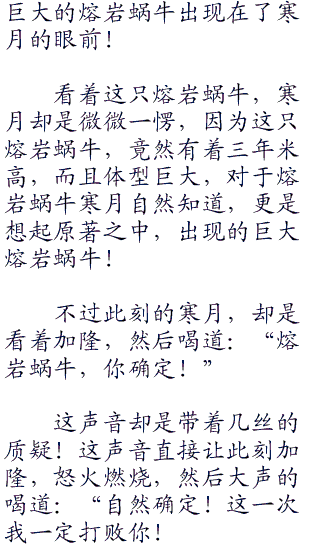 巨大的熔岩蜗牛出现在了寒
月的眼前！
看着这只熔岩蜗牛，寒
月却是微微一愣，因为这只
熔岩蜗牛，竟然有着三年米
高，而且体型巨大，对于熔
岩蜗牛寒月自然知道，更是
想起原著之中，出现的巨大
熔岩蜗牛！
不过此刻的寒月，却是
看着加隆，然后喝道：“熔
岩蜗牛，你确定！”
这声音却是带着几丝的
质疑！这声音直接让此刻加
隆，怒火燃烧，然后大声的
喝道：“自然确定！这一次
我一定打败你！